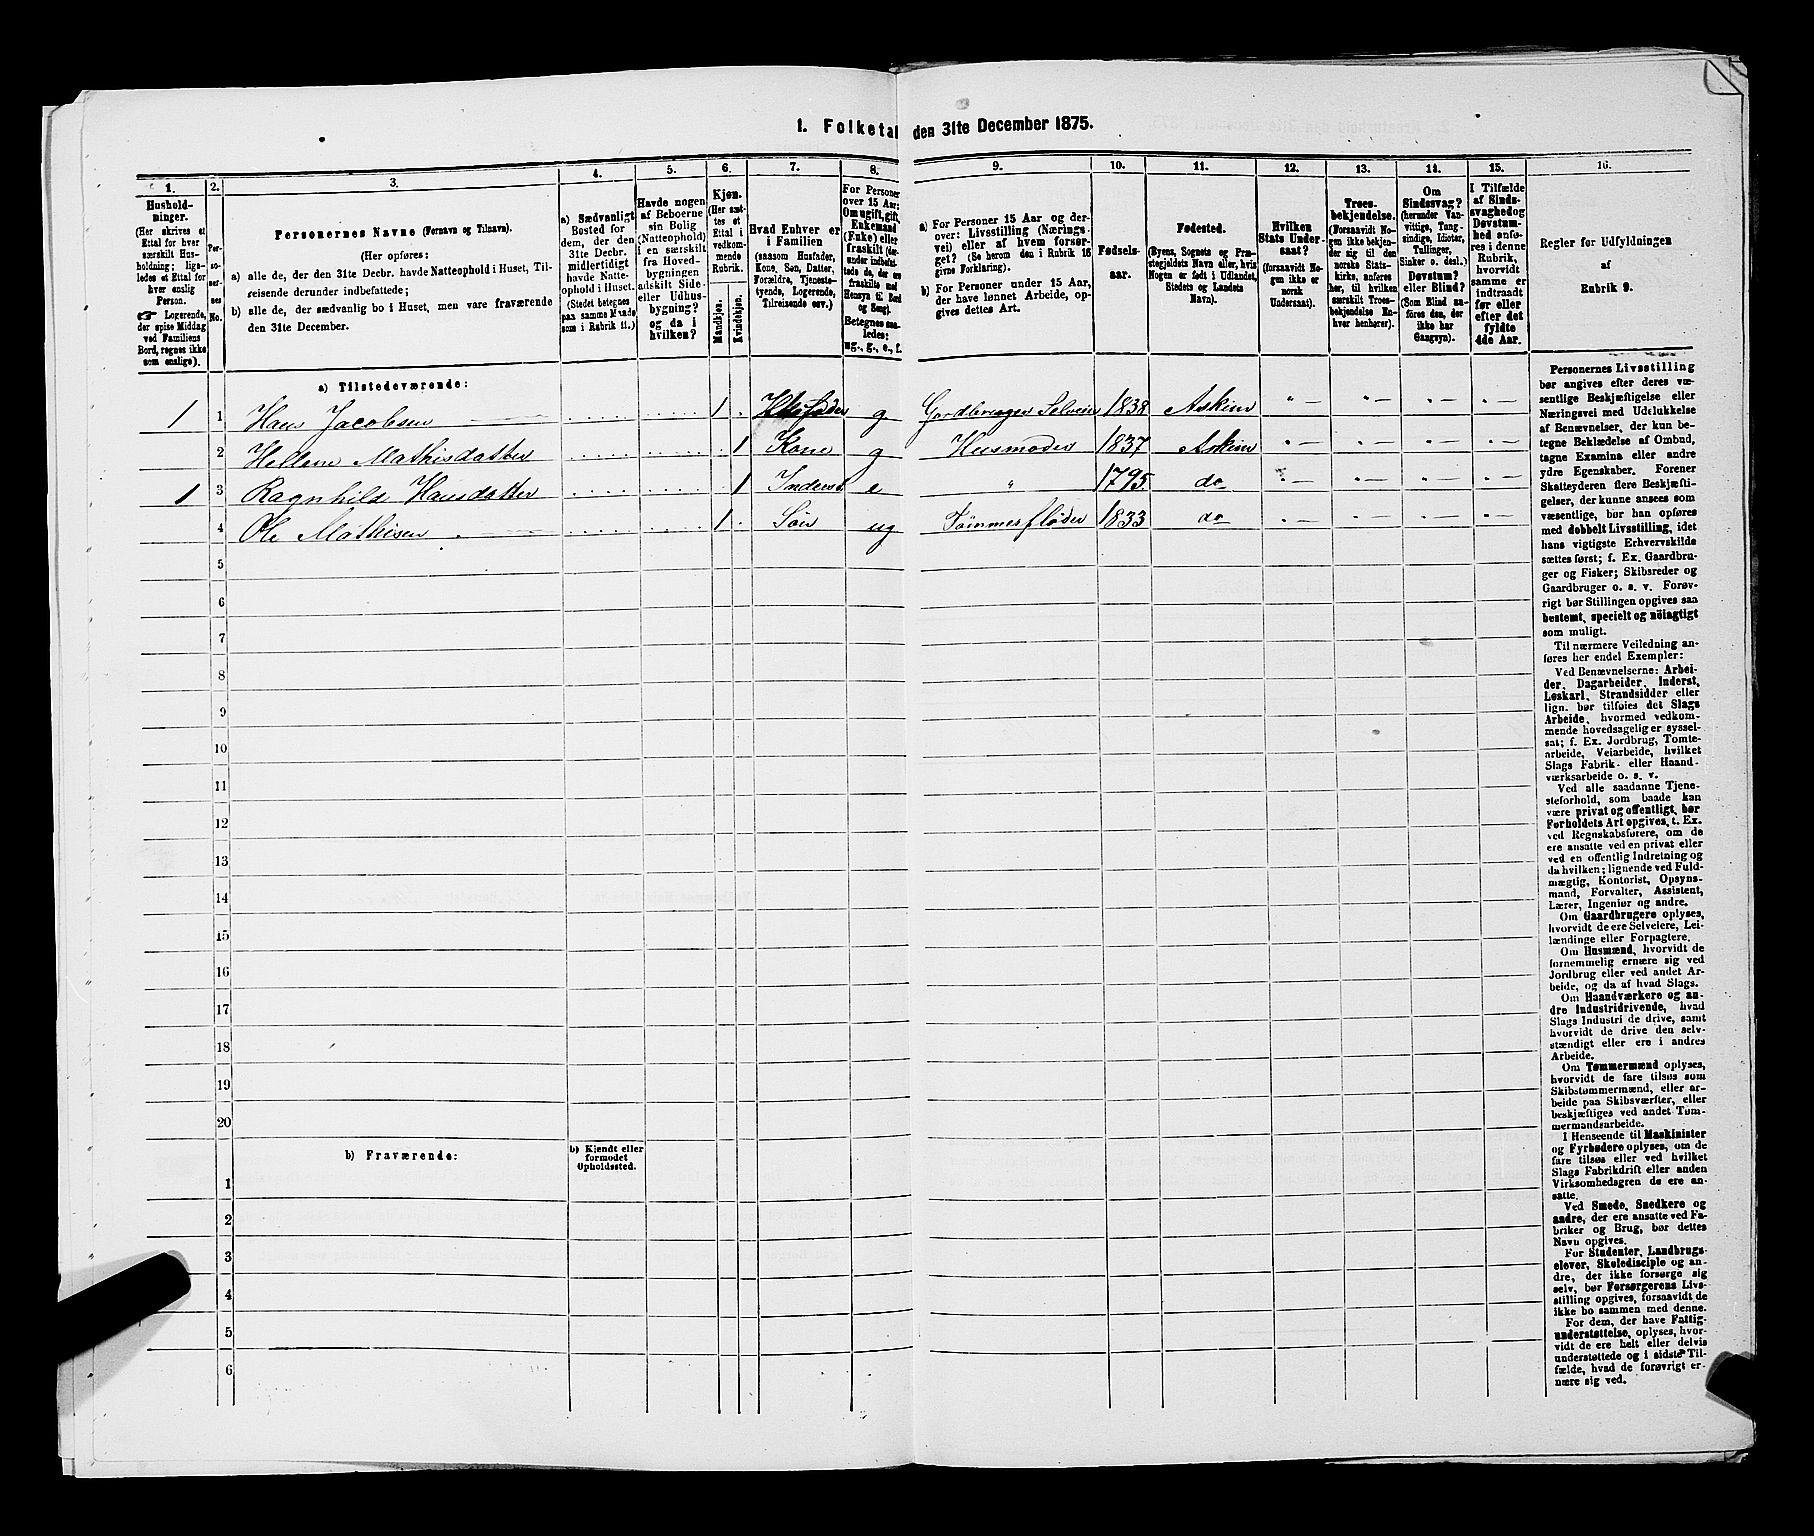 1. Folketal den 31te December 1875.
1. 2. 3. 4. 5. 6. 7. 8. 9. 10. 11. 12. 13. 14. 15. 16.
Hushold-
ninger.
(Her skrives et
Ettal for hver
særskilt Hus-
holdning; lige-
ledes et Ettal for
hver enslig
Person.
☞ Logerende,
der spise Middag
ved Familiens
Bord, regnes ikke
som enslige).
Per-
so-
ner-
nes
No.
Personernes Navne (Fornavn og Tilnavn).
(Her opføres:
a) alle de, der den 31te Decbr. havde Natteophold i Huset, Til-
reisende derunder indbefattede;
b) alle de, der sædvanlig bo i Huset, men vare fraværende
den 31te December.
a) Sædvanligt
Bosted for
dem, der den
31te Decbr.
midlertidigt
havde Natte-
ophold i Huset.
(Stedet betegnes
paa samme Maade
som i Rubrik 11.)
Havde nogen
af Beboerne
sin Bolig
(Natteophold)
i en særskilt
fra Hoved-
bygningen
adskilt Side-
eller Udhus-
bygning?
og da i
hvilken?
Kjøn.
(Her sæt-
tes et
Ettal i
vedkom-
mende
Rubrik.
Mandkjøn.
Kvindekjøn.
Hvad Enhver er
i Familien
(saasom Husfader,
Kone, Søn, Datter,
Forældre, Tjeneste-
tyende, Logerende,
Tilreisende osv.)
For Personer
over 15 Aar:
Om ugift, gift,
Enkemand
(Enke) eller
fraskilt (der-
under indbefat-
tede de, der ere
fraskilte med
Hensyn til Bord
og Seng).
Betegnes saa-
ledes:
ug., g., e., f.
a) For Personer 15 Aar og der-
over: Livsstilling (Nærings-
vei) eller af hvem forsør-
get? (Se herom den i Rubrik 16
givne Forklaring).
b) For Personer under 15 Aar,
der have lønnet Arbeide, op-
gives dettes Art.
Fødsels-
aar.
Fødested.
(Byens, Sognets og Præ-
stegjeldets Navn eller, hvis
Nogen er født i Udlandet,
Stedets og Landets
Navn).
Hvilken
Stats Under-
saat?
(forsaavidt No-
gen ikke er
norsk
Undersaat).
Troes-
bekjendelse.
(Forsaavidt No-
gen ikke bekjen-
der sig til den
norske Stats-
kirke, anføres
her, til hvilken
særskilt Troes-
bekjendelse En-
hver henhører).
Om
Sindssvag?
(herunder Van-
vittige, Tung-
sindige, Idioter,
Tullinger,
Sinker o. desl.)
Døvstum?
eller Blind?
(Som Blind an-
føres den, der
ikke har
Gangsyn).
I Tilfælde
af Sinds-
svaghed og
Døvstum-
hed anfø-
res i denne
Rubrik,
hvorvidt
samme er
indtraadt
før eller
efter det
fyldte
4de Aar.
Regler for Udfyldningen
af
Rubrik 9.
a) Tilstedeværende:
1 1 Hans Jacobsen 1 g Gardbruger Selveier 1838 Askim
2 Hellene Mathisdatter 1 Kone g Husmoder 1837 Askim
1 3 Ragnhild Hansdatter 1 Inderst e " 1795 do
4 Ole Mathisen 1 Søn ug Tømmerfløder 1833 do
5
6
7
8
9
10
11
12
13
14
15
16
17
18
19
20
b) Fraværende:
b) Kjendt eller
formodet
Opholdssted.
1
2
3
4
5
6
Personernes Livsstilling
bør angives efter deres væ-
sentlige Beskjæftigelse eller
Næringsvei med Udelukkelse
af Benævnelser, der kun be-
tegne Beklædelse af Ombud,
tagne Examina eller andre
ydre Egenskaber. Forener
Skatteyderen flere Beskjæfti-
gelser, der kunne ansees som
væsentlige, bør han opføres
med dobbelt Livsstilling, idet
hans vigtigste Erhvervskilde
sættes først; f. Ex. Gaardbru-
ger og Fisker; Skibsreder og
Gaardbruger o. s. v. Forøv-
rigt bør Stillingen opgives saa
bestemt, specielt og nöiagtigt
som muligt.
Til nærmere Veiledning an-
føres her endel Exempler:
Ved Benævnelserne: Arbei-
der, Dagarbeider, Inderst,
Løskarl, Strandsidder eller
lign. bør tilføies det Slags
Arbeide, hvormed vedkom-
mende hovedsagelig er syssel-
sat; f. Ex. Jordbrug, Tomte-
arbeide, Veiarbeide, hvilket
Slags Fabrik- eller Haand-
værksarbeide o. s. v.
Ved alle saadanne Tjene-
steforhold, som baade kan
være privat og offentligt, bør
Forholdets Art opgives, t. Ex.
ved Regnskabsførere, om de
ere ansatte ved en privat eller
ved en offentlig Indretning og
da hvilken; lignende ved Fuld-
mægtig, Kontorist, Opsyns-
mand, Forvalter, Assistent,
Lærer, Ingeniør og andre.
Om Gaardbrugere oplyses,
hvorvidt de ere Selveiere, Lei-
lændinge eller Forpagtere.
Om Husmænd, hvorvidt de
fornemmelig ernære sig ved
Jordbrug eller ved andet Ar-
beide, og da af hvad Slags.
Om Haandværkere og an-
dre Industridrivende, hvad
Slags Industri de drive, samt
hvorvidt de drive den selv-
stændigt eller ere i andres
Arbeide.
Om Tømmermænd oplyses,
hvorvidt de fare tilsøs som
Skibstømmermænd, eller ar-
beide paa Skibsværfter, eller
beskjæftiges ved andet Tøm-
mermandsarbeide.
I Henseende til Maskinister
og Fyrbødere oplyses, om de
fare tilsøs eller ved hvilket
Slags Fabrikdrift eller anden
Virksomhedsgren de ere an-
satte.
Ved Smede, Snedkere og
andre, der ere ansatte ved Fa-
briker og Brug, bør dettes
Navn opgives.
For Studenter, Landbrugs-
elever, Skoledisciple og an-
dre, der ikke forsørge sig
selv, bør Forsørgerens Livs-
stilling opgives, forsaavidt de
ikke bo sammen med denne.
For dem, der have Fattig-
understøttelse, oplyses, hvor-
vidt de ere helt eller delvis
understøttede og i sidste Til-
fælde, hvad de forøvrigt er-
nære sig ved.